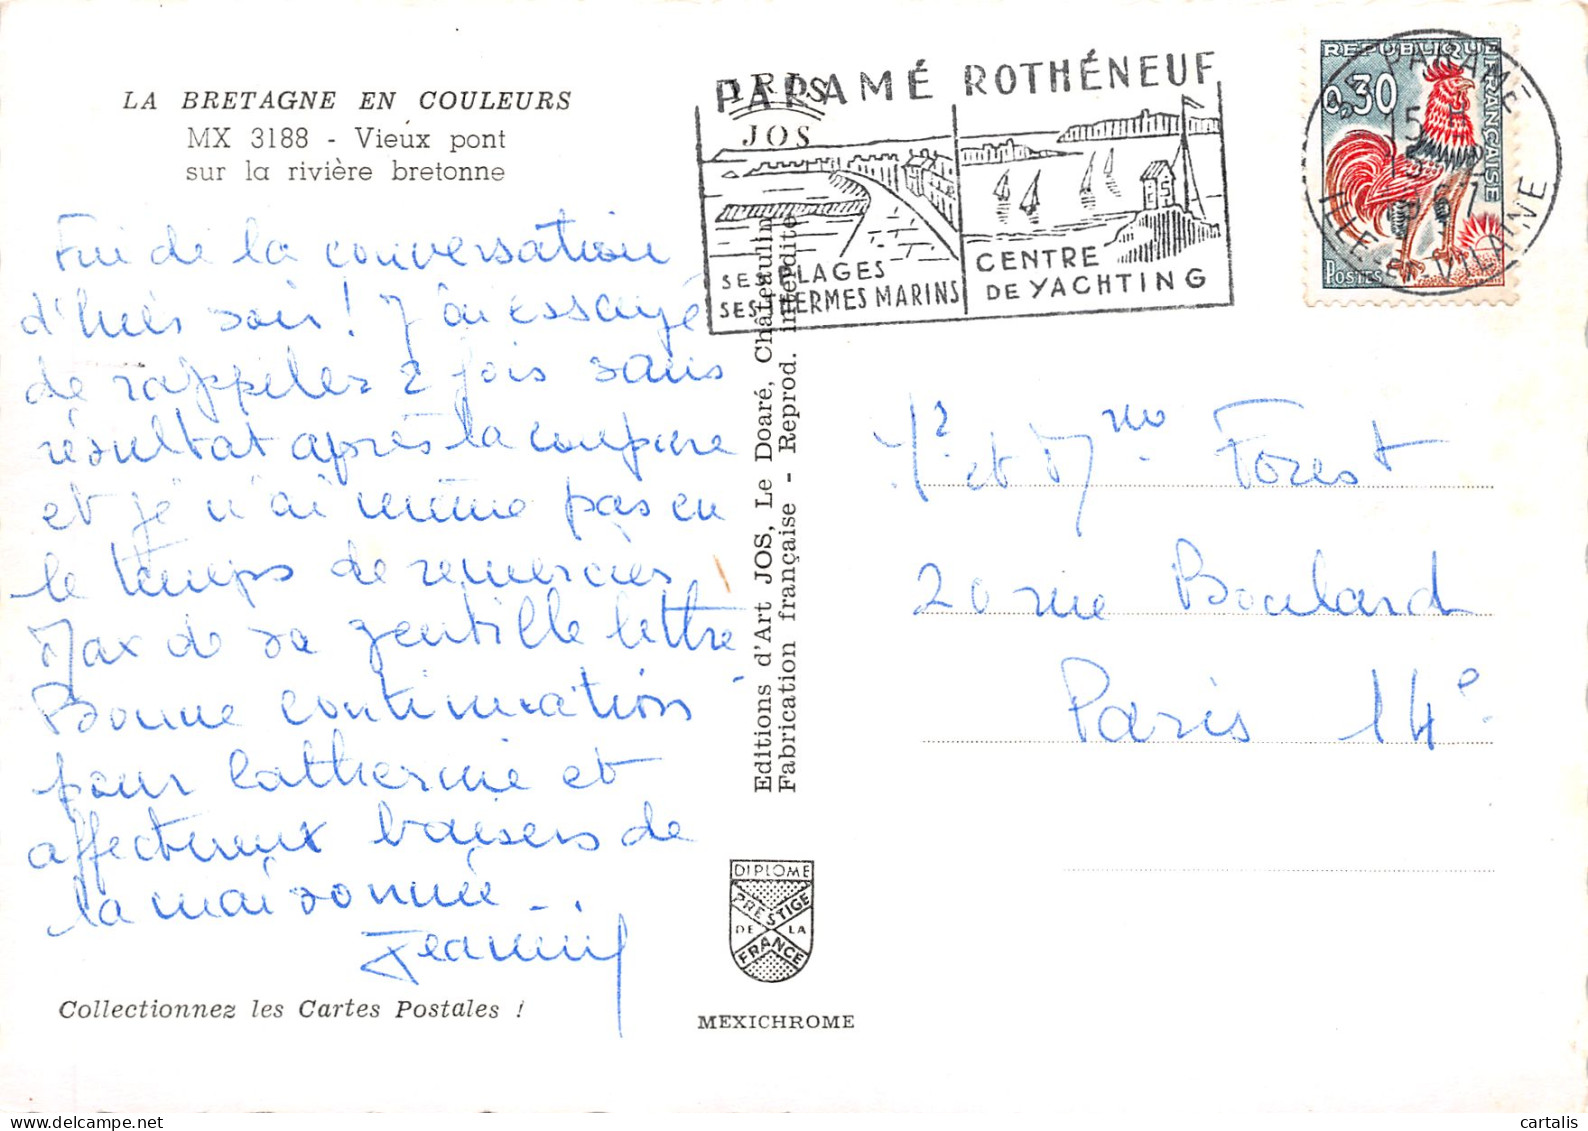 LA BRETAGNE EN COULEURS
MX 3188 - Vieux pont
sur la rivière bretonne
Fin de la conversation
d'hier soir ! J'ai essayé
de rappeler 2 fois sans
résultat après la coupure
et je n'ai même pas eu
le temps de remercier
Max de sa gentille lettre
Bonne continuation
pour Catherine et
affectueux baisers de
la maisonnée
Collectionnez les Cartes Postales !
IRIS
JOS
Editions d'Art JOS, Le Doaré, Châteaulin
Fabrication française - Reprod. interdite
DIPLOME
PRESTIGE
DE LA
FRANCE
MEXICHROME
PARAMÉ ROTHÉNEUF
SES PLAGES
SES THERMES MARINS
CENTRE
DE YACHTING
REPUBLIQUE FRANÇAISE
0,30
POSTES
PARAMÉ
ILLE ET VILAINE
Mr et Mme Forest
20 rue Boulard
Paris 14e
cartalis